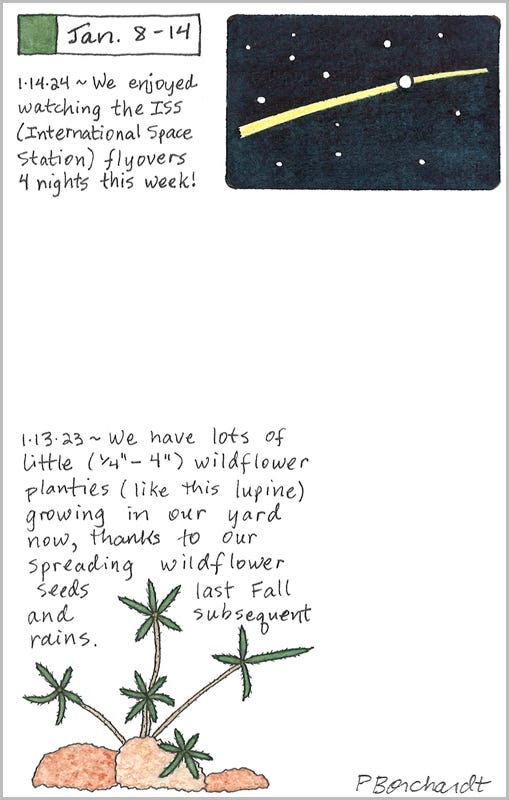 Jan. 8-14
1·14·24 ~ We enjoyed
watching the ISS
(International Space
Station) flyovers
4 nights this week!
1·13·23 ~ We have lots of
little (1/4"- 4") wildflower
planties (like this lupine)
growing in our yard
now, thanks to our
spreading wildflower
seeds last Fall
and subsequent
rains.
PBorchardt